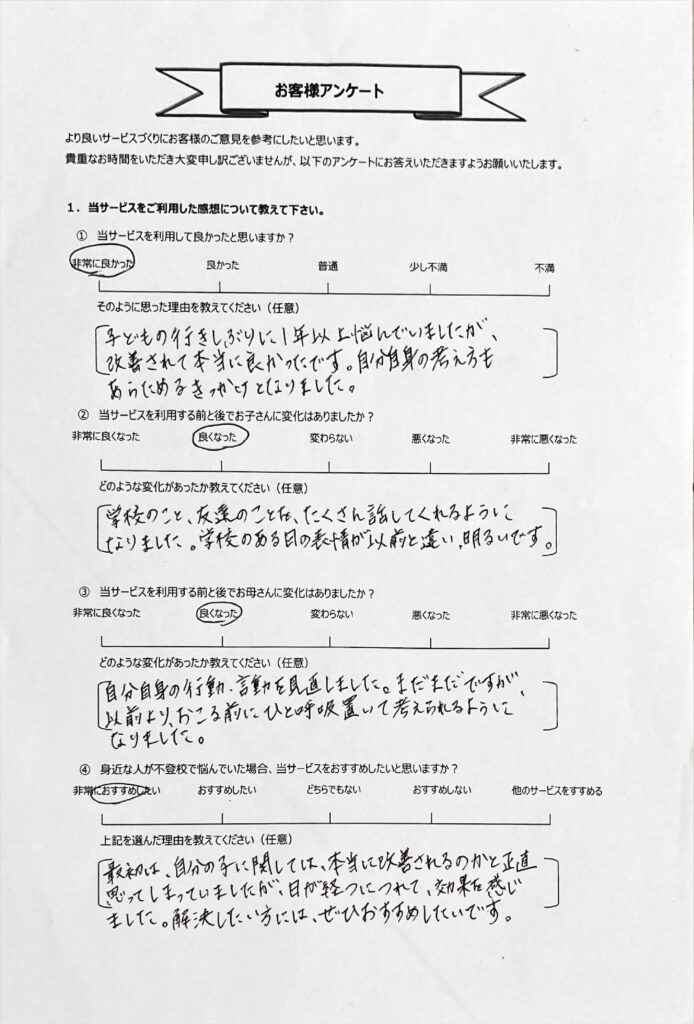 お客様アンケート
より良いサービスづくりにお客様のご意見を参考にしたいと思います。
貴重なお時間をいただき大変申し訳ございませんが、以下のアンケートにお答えいただきますようお願いいたします。
1．当サービスをご利用した感想について教えて下さい。
① 当サービスを利用して良かったと思いますか？
非常に良かった 良かった 普通 少し不満 不満
そのように思った理由を教えてください（任意）
子どもの行きしぶりに1年以上悩んでいましたが、
改善されて本当に良かったです。自分自身の考え方も
あらためるきっかけとなりました。
② 当サービスを利用する前と後でお子さんに変化はありましたか？
非常に良くなった 良くなった 変わらない 悪くなった 非常に悪くなった
どのような変化があったか教えてください（任意）
学校のこと、友達のことを、たくさん話してくれるように
なりました。学校のある日の表情が以前と違い、明るいです。
③ 当サービスを利用する前と後でお母さんに変化はありましたか？
非常に良くなった 良くなった 変わらない 悪くなった 非常に悪くなった
どのような変化があったか教えてください（任意）
自分自身の行動、言動を見直しました。まだまだですが、
以前より、おこる前にひと呼吸置いて考えられるように
なりました。
④ 身近な人が不登校で悩んでいた場合、当サービスをおすすめしたいと思いますか？
非常におすすめしたい おすすめしたい どちらでもない おすすめしない 他のサービスをすすめる
上記を選んだ理由を教えてください（任意）
最初は、自分の子に関しては、本当に改善されるのかと正直
思ってしまっていましたが、日が経つにつれて、効果を感じ
ました。解決したい方には、ぜひおすすめしたいです。